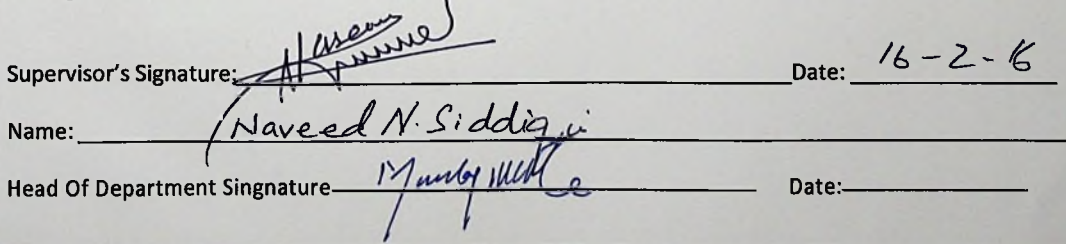 Supervisor's Signature: Date: 16-2-16
Name: Naveed N. Siddiqui
Head Of Department Singnature Date: